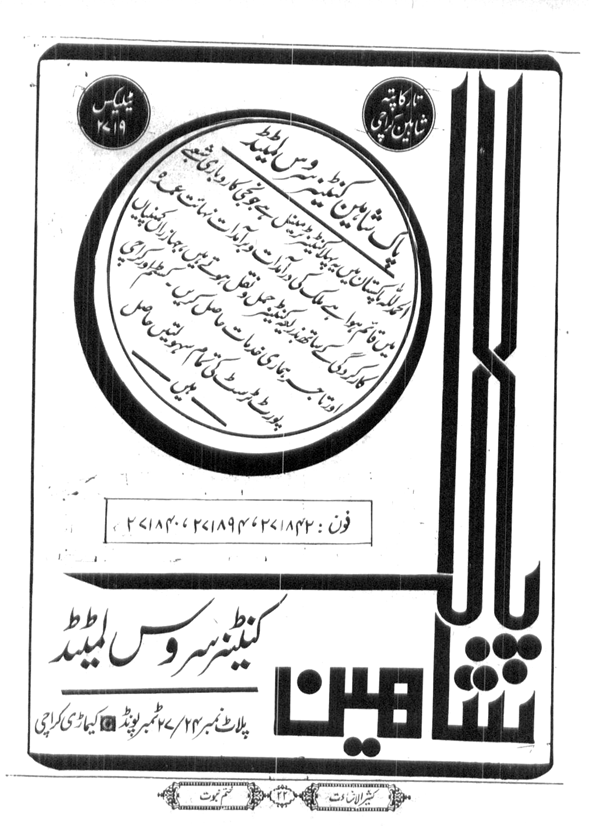 تار کا پتہ
شاہین کراچی
ٹیلیکس
۲۷۱۹
پاک شاہین کنٹینر سروس لمٹیڈ
الحمد للہ پاکستان میں یہ پہلا کنٹینر ٹرمینل ہے جو نجی کاروباری شعبے
میں قائم ہوا ہے ملک کی درآمدات و برآمدات نہایت عمدہ
کارکردگی کے ساتھ بذریعہ کنٹینر حمل و نقل ہوتے ہیں، جہازراں کمپنیاں
اور تاجر ہماری خدمات حاصل کریں۔ کسٹم اور کراچی
پورٹ ٹرسٹ کی تمام سہولتیں حاصل
ہیں
فون : ۲۷۱۸۴۲، ۲۷۱۸۹۴، ۲۷۱۸۴۰
پاک
شاهین
کنٹینر سروس لمٹیڈ
پلاٹ نمبر ۲۷/۲۴ ٹمبر پونڈ کیماڑی کراچی
۲۲
ختم نبوت